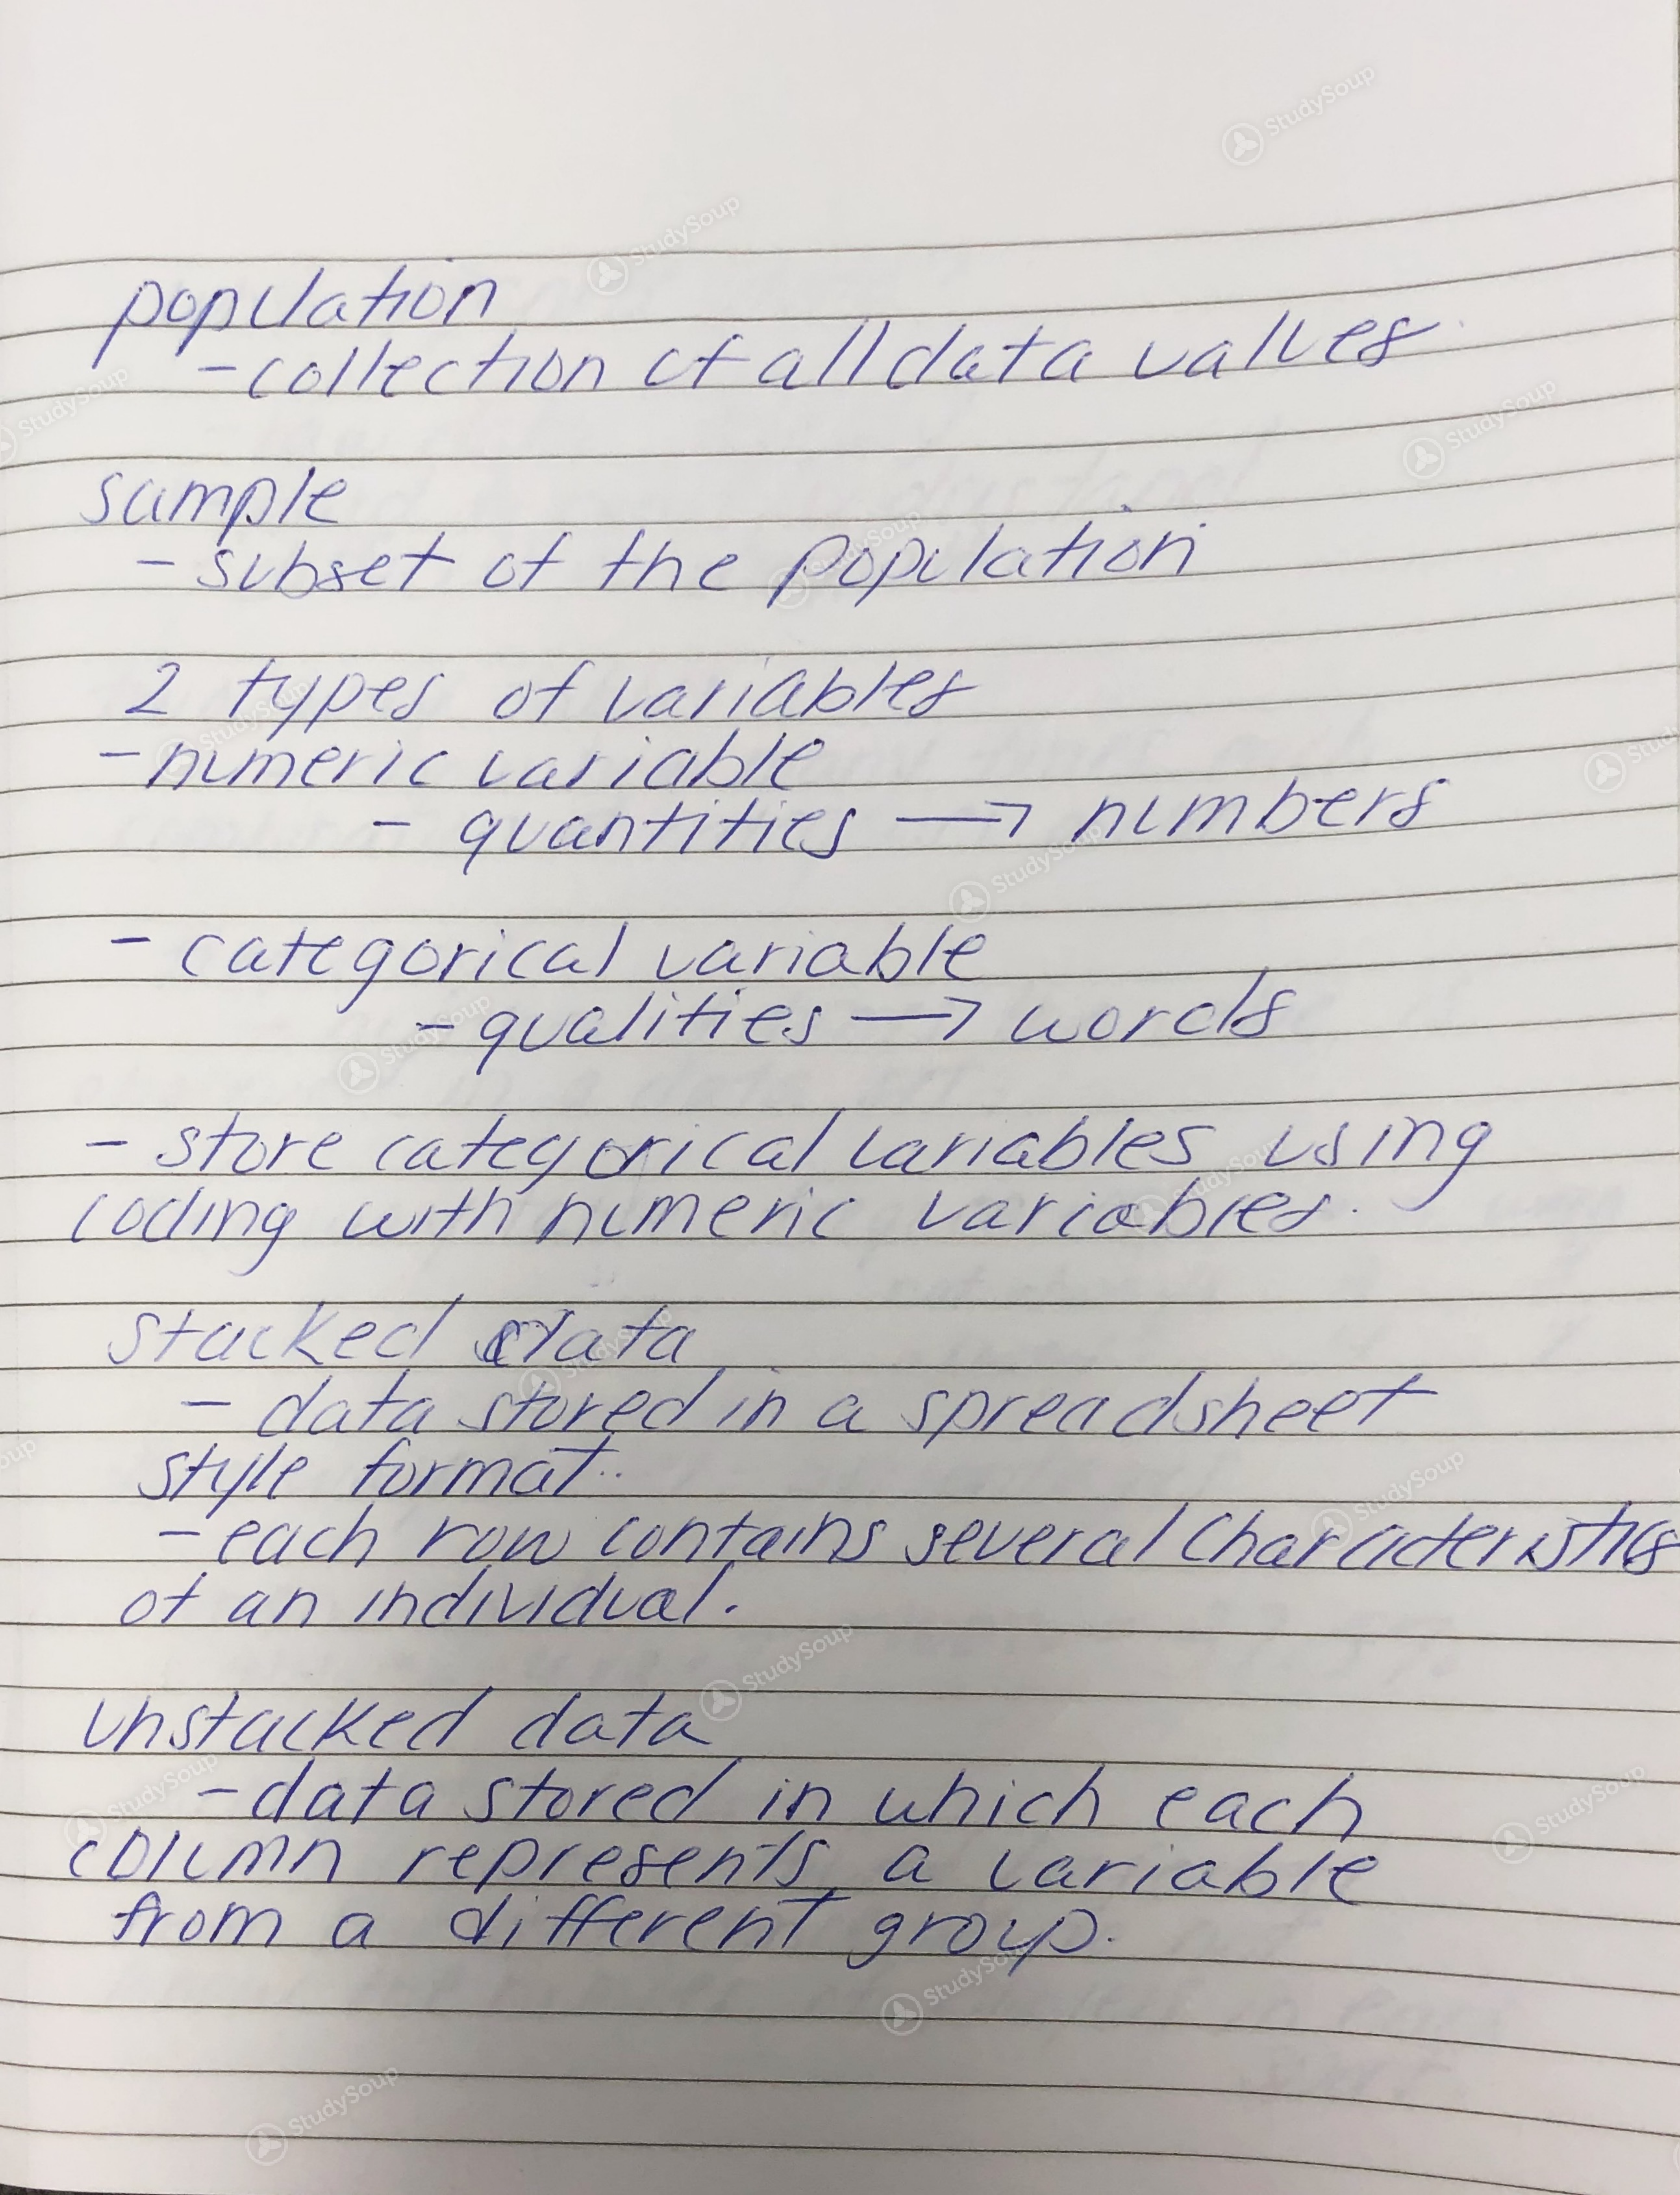 population
- collection of all data values
sample
- subset of the population
2 types of variables
- numeric variable
- quantities → numbers
- categorical variable
- qualities → words
- store categorical variables using
coding with numeric variables.
stacked data
- data stored in a spreadsheet
style format.
- each row contains several characteristics
of an individual.
unstacked data
- data stored in which each
column represents a variable
from a different group.
StudySoup
StudySoup
StudySoup
StudySoup
StudySoup
StudySoup
StudySoup
StudySoup
StudySoup
StudySoup
StudySoup
StudySoup
StudySoup